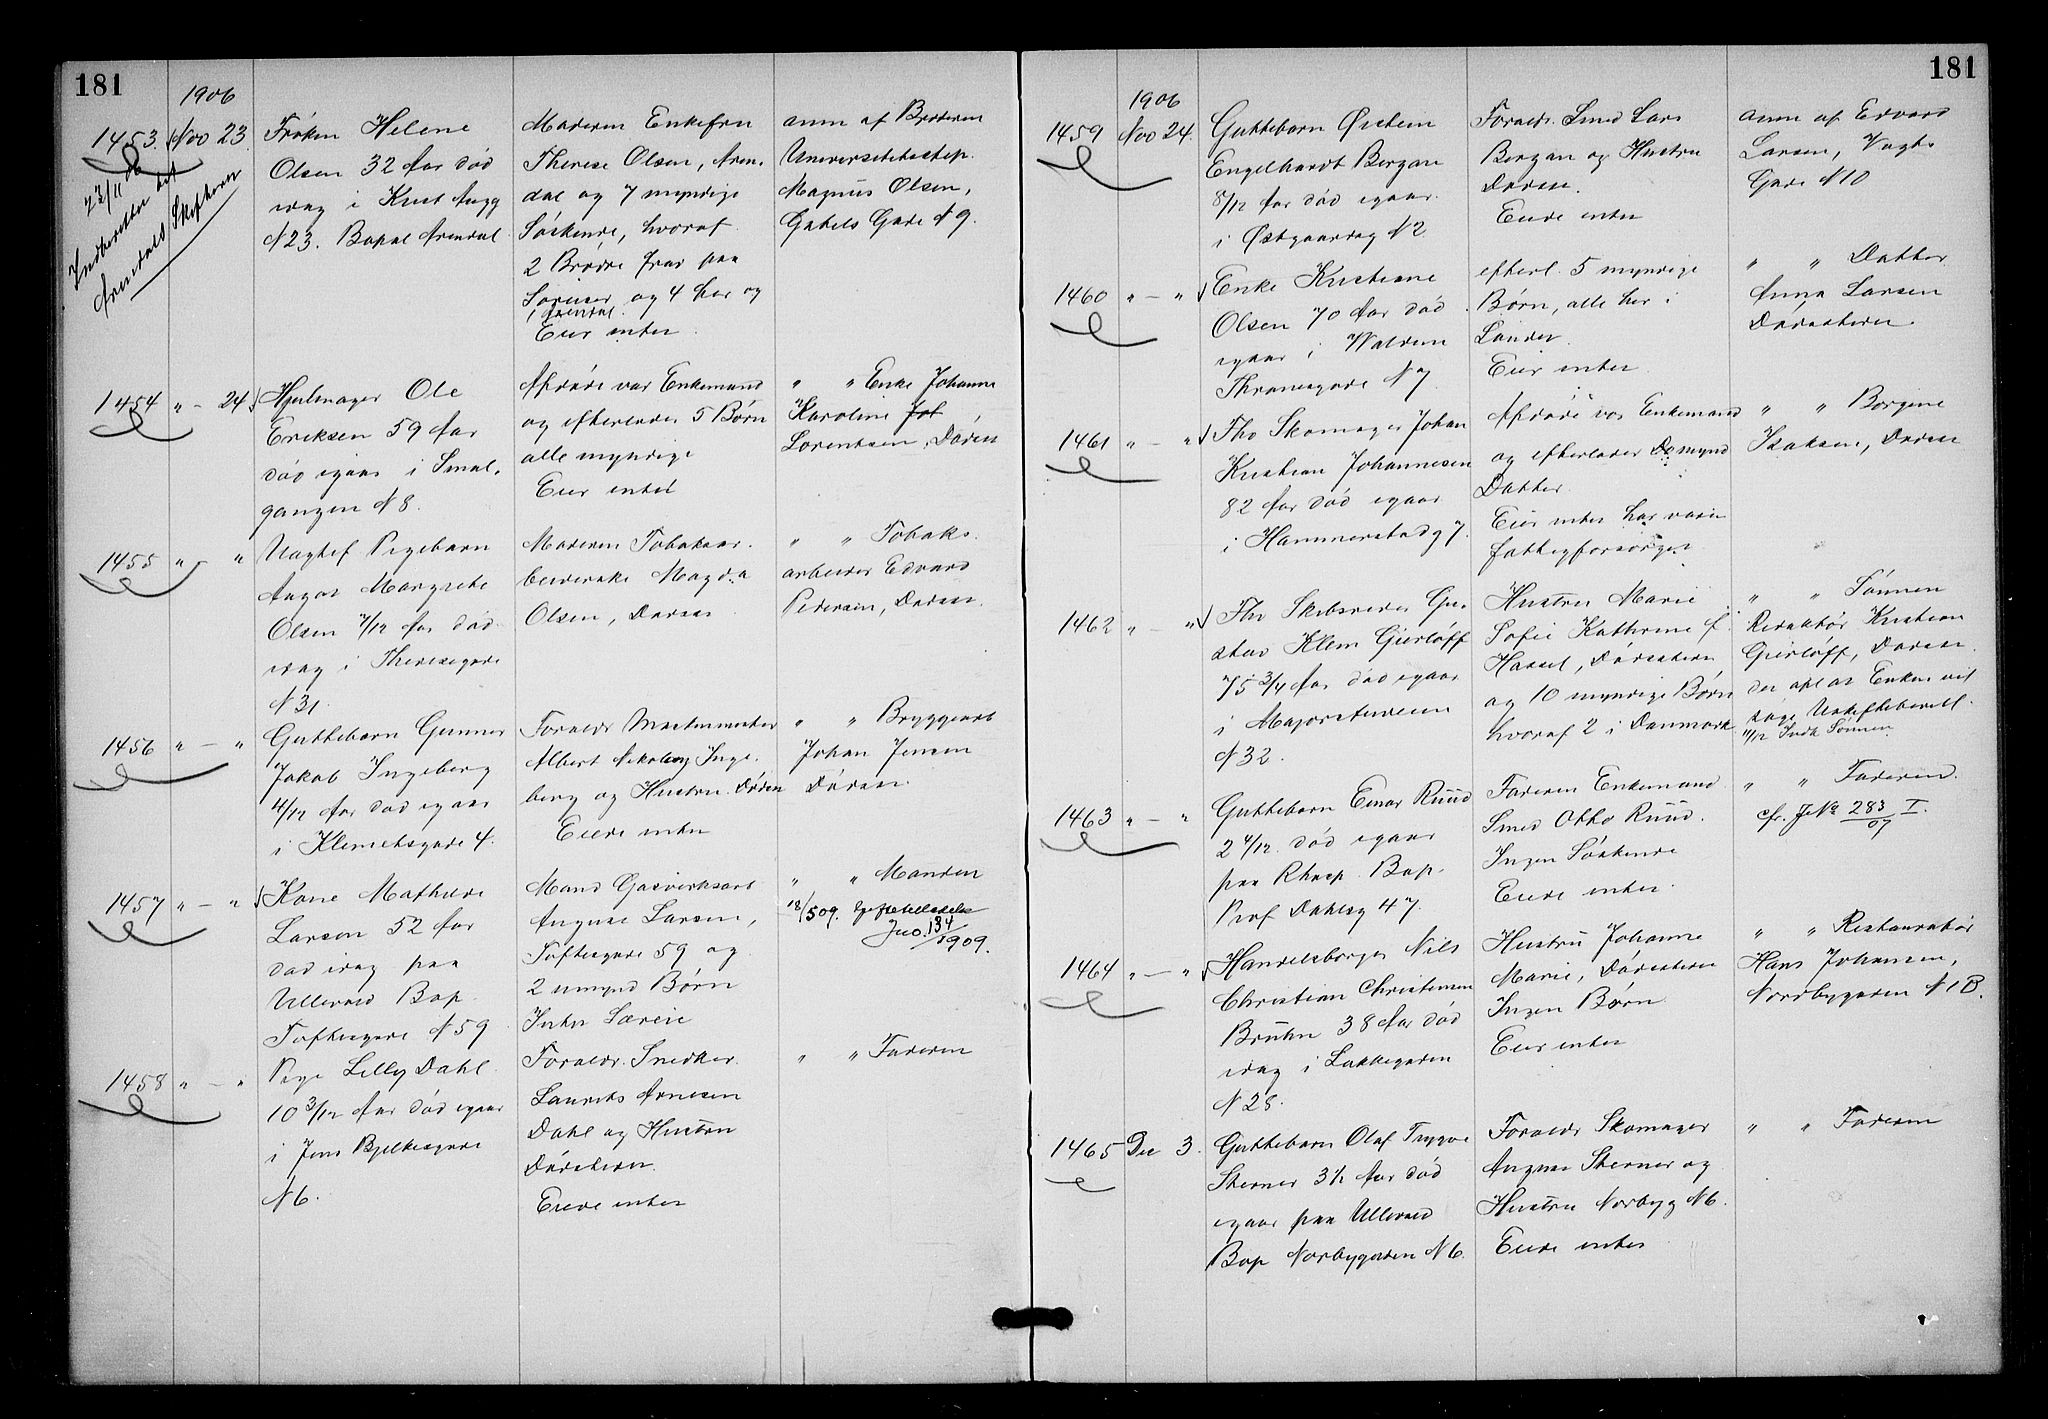 181
1906
1453. Nov 23.
23/11 06
Indberettet til
Arendals Skifteret
Frøken Helene
Olsen 32 Aar død
idag i Krist Augg
N 23. Bopæl Arendal
Moderen Enkefru
Therese Olsen, Aren-
dal og 7 myndige
Søskende, hvoraf
2 Brødre
og 4 her og
i Arendal.
Eier intet
anm af Broderen
Universitetsstip.
Magnus Olsen,
Gabels Gade N 9.
1454 " — 24
Hjulmager Ole
Eriksen 59 Aar
død igaar i Smal-
gangen N 8.
Afdøde var Enkemand
og efterlader 5 Børn
alle myndige
Eier intet
" " Enke Johanne
Karoline Jof
Lorentsen, Døden
1455 " — "
Uægtef Pigebarn
Aagot Margrethe
Olsen 7/12 Aar død
idag i Theresegade
N 31
Moderen Tobaksar-
beiderske Magda
Olsen, Dødsst
" " Tobaks-
arbeider Edvard
Pedersen, Dødsst.
1456 " — "
Guttebarn Gunnar
Jakob Ingeberg
4/12 Aar død igaar
i Klemetsgade 4.
Forældr
Albert Nikolay Inge-
berg og Hustru Døden
Eiede intet
" " Bryggearb
Johan Jensen
Dødsst.
1457 " — "
Kone Mathilde
Larsen 52 Aar
død idag paa
Ullevaal Bop.
Toftesgade N 59
Mand Gasverksarb
August Larsen,
Toftesgade 59 og
2 umynd Børn
Intet Særeie
" " Manden
18/5 09. Skiftetilladelse
Jno. 134/1909.
1458 " — "
Pige Lilly Dahl
10 3/12 Aar død igaar
i Jens Bjelkesgade
N 6.
Forældr. Snedker
Laurits Arnesen
Dahl og Hustru
Dødsstedet.
Eiede intet
" " Faderen
181
1906
1459 Nov 24.
Guttebarn Øistein
Engelhardt Bergan
8/12 Aar død igaar
i Østgaardsg N 2
Forældr. Smed Lars
Bergan og Hustru
Dødsst.
Eiede intet
anm af Edvard
Larsen, Vogts
Gade N 10
1460 " — "
Enke Kristiane
Olsen 70 Aar død
igaar i Waldem
Thranesgade N 7
efterl. 5 myndige
Børn, alle her i
Landet.
Eier intet
" " Datter
Anna Larsen
Dødsstedet.
1461 " — "
Fhv Skomager Johan
Kristian Johannesen
82 Aar død igaar
i Hammerstadg 7.
Afdøde var Enkemand
og efterlader mynd
Datter.
Eier intet har været
fattigforsørget
" " Borgine
Isaksen, Dødsst
1462 " — "
Fhv Skibsreder Gu-
stav Klem Gierløff
75 3/4 Aar død igaar
i Majorstuveien
N 32.
Hustru Marie
Sofie Kathrine f.
Hassel, Dødsstedet
og 10 myndige Børn
hvoraf 2 i Danmark
" " Sønnen
Redaktør Kristian
Gierløff, Dødsst.
der opl at Enken vil
søge Uskiftebevill.
11/12 Indk Sønnen
1463 " — "
Guttebarn Einar Ruud
2 4/12 død igaar
paa Rhosp. Bop.
Prof Dahlsg 47.
Faderen Enkemand
Smed Otto Ruud.
Ingen Søskende
Eiede intet.
" " Faderen.
cfr. JNo 283/07 I.
1464 " — "
Handelsborger Nils
Christian Christensen
Bruhn 38 Aar død
idag i Lakkegaden
N 28.
Hustru Johanne
Marie, Dødsstedet
Ingen Børn
Eier intet
" " Restauratør
Hans Johansen,
Nordbygaden N 1 B.
1465 Dec 3.
Guttebarn Olaf Trygve
Sterner 3 1/2 Aar død
igaar paa Ullevaal
Bop Norbygaden N 6.
Forældr Skomager
August Sterner og
Hustru Norbyg N 6.
Eiede intet
" " Faderen